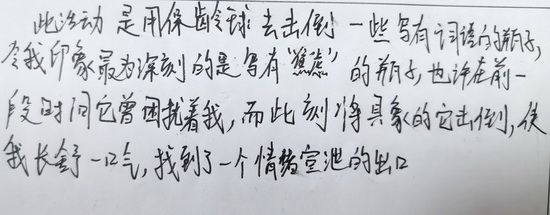 此活动是用保龄球去击倒一些写有词语的瓶子,
令我印象最为深刻的是写有“焦虑”的瓶子,也许在前一
段时间它曾困扰着我,而此刻将具象的它击倒,使
我长舒一口气,找到了一个情绪宣泄的出口